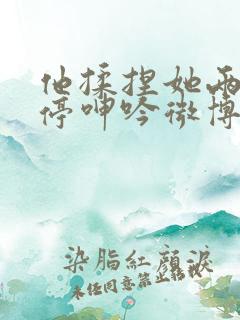 他揉捏她两
停呻吟微博
染脂紅顏淚
未经同意禁止转载